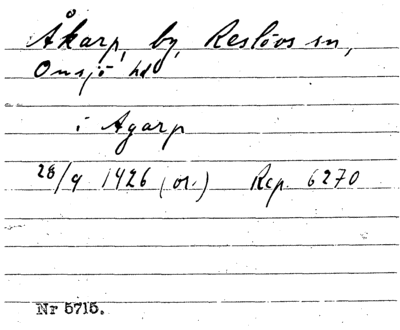 Åkarp, by, Reslövs sn,
Onsjö hd
i Agarp
28/9 1426 (or.) Rep. 6270
Nr 5715.